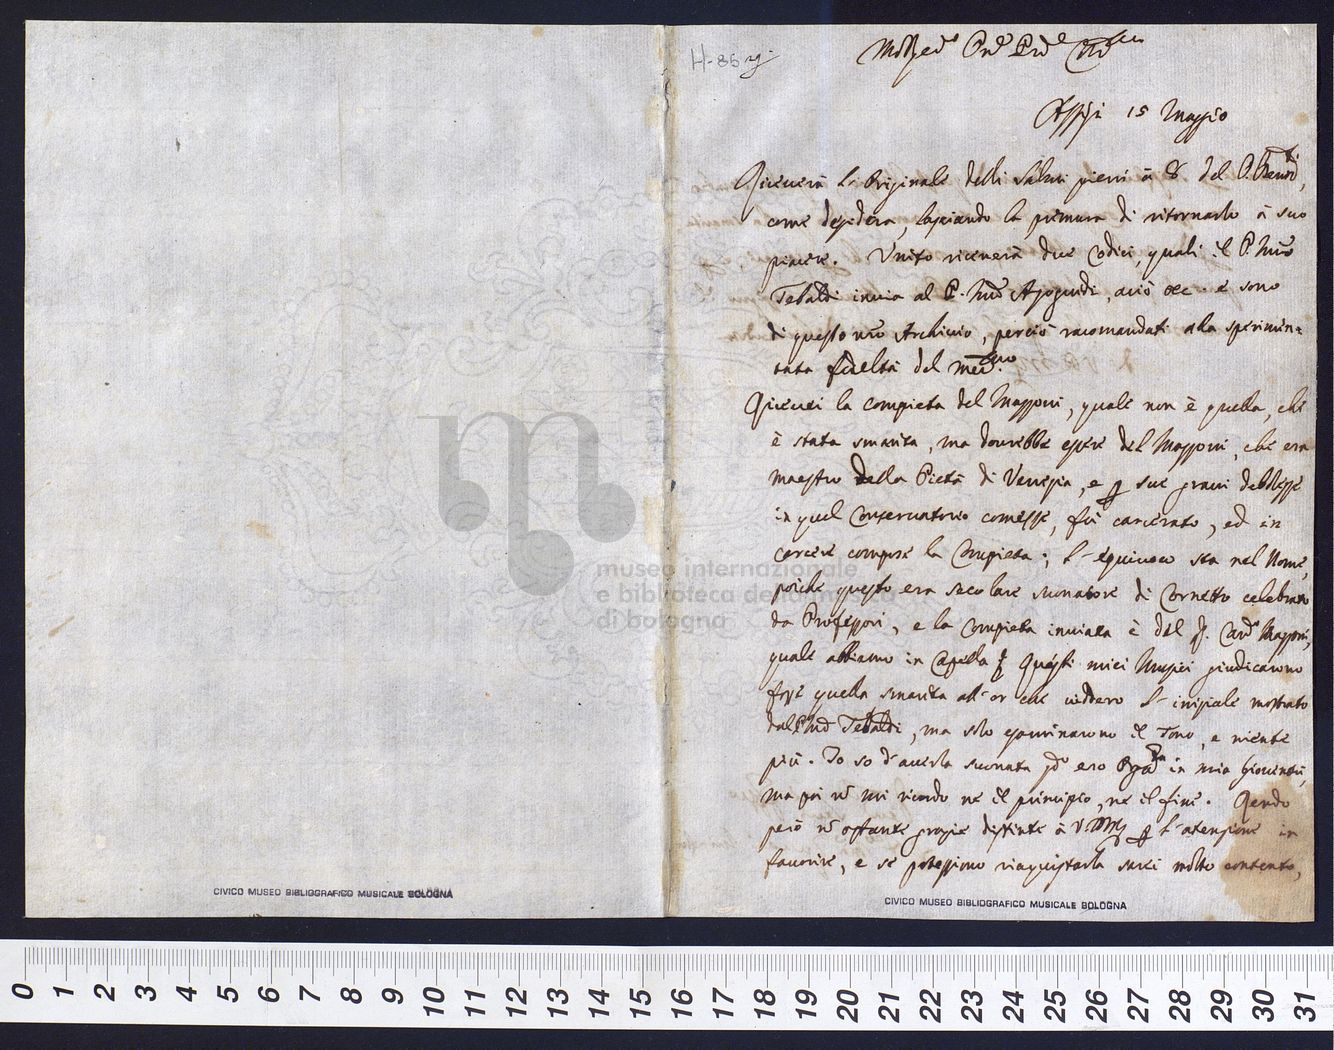 H-85
Assisi 15 Maggio
Riceverà l'originale delli Salmi pieni à 8 del P.
come desidera, lasciando la premura di ritornarlo à suo
piacere. Unito riceverà due Codici, quali il P. Mro
Tebaldi invia al P. Mro, acciò &c. e sono
di questo nro Archivio, perciò racomandati alla sperimen=
tata fedeltà del
Ricevei la Compieta del Mazzoni, quale non è quella, che
è stata smarita, ma dovrebbe essere del Mazzoni, che era
maestro della Pietà di Venezia, e p sue gravi debolezze
in quel Conservatorio comesse, fù carcerato, ed in
carcere compose la Compieta; l'equivoco sta nel Nome,
poiche questo era secolare suonatore di Cornetto celebrato
da Professori, e la Compieta inviata è del Mazzoni,
quale abbiamo in Capella Questi miei Musici giudicarono
fosse quella smarita all'or che viddero l'iniziale mostrato
dal P. Mro Tebaldi, ma solo esaminarono il Tono, e niente
più. Io so d'averla suonata qdo ero in mia Gioventù,
ma poi nō mi ricordo ne il principio, ne il fine. Rendo
però nō ostante grazie distinte à V. p l'atenzione in
favorire, e se potessimo riacquistarla sarei molto contento,
museo internazionale
e biblioteca della musica
di bologna
CIVICO MUSEO BIBLIOGRAFICO MUSICALE BOLOGNA
CIVICO MUSEO BIBLIOGRAFICO MUSICALE BOLOGNA
0 1 2 3 4 5 6 7 8 9 10 11 12 13 14 15 16 17 18 19 20 21 22 23 24 25 26 27 28 29 30 31